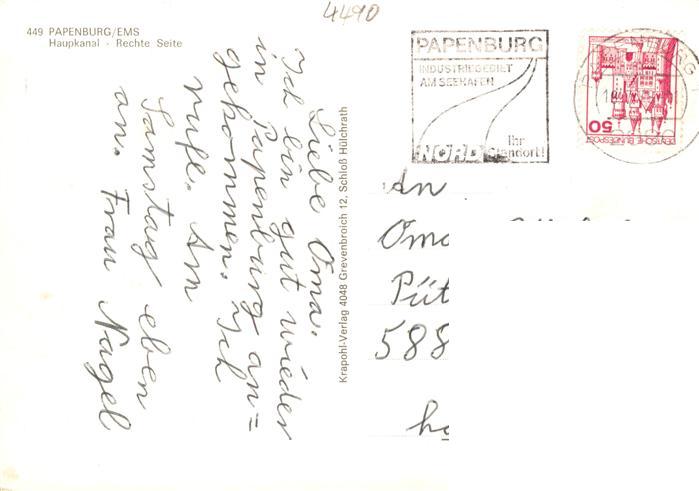 4490
449 PAPENBURG/EMS
Hauptkanal - Rechte Seite
Liebe Oma.
Ich bin gut wieder
in Papenburg an=
gekommen. Ich
rufe. Am
Samstag eben
an. Frau Nagel
Krapohl-Verlag 4048 Grevenbroich 12, Schloß Hülchrath
PAPENBURG
INDUSTRIEGEBIET
AM SEEHAFEN
NORD
Ihr
Standort!
50
DEUTSCHE BUNDESPOST
An
Oma
Püt
588